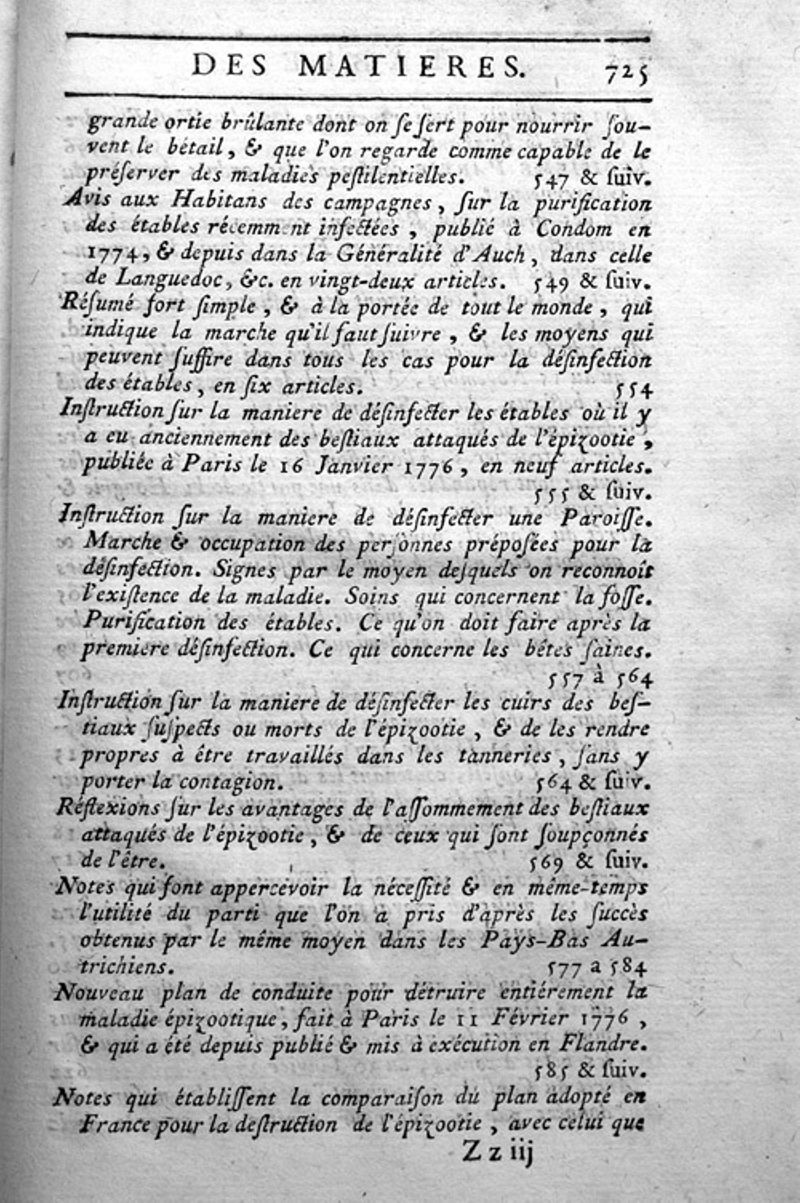 DES MATIERES. 725
grande ortie brûlante dont on se ſert pour nourrir ſou-
vent le bétail, & que l'on regarde comme capable de le
préſerver des maladies peſtilentielles. 547 & ſuiv.
Avis aux Habitans des campagnes, ſur la purification
des étables récemment infectées, publié à Condom en
1774, & depuis dans la Généralité d'Auch, dans celle
de Languedoc, &c. en vingt-deux articles. 549 & ſuiv.
Réſumé fort ſimple, & à la portée de tout le monde, qui
indique la marche qu'il faut ſuivre, & les moyens qui
peuvent ſuffire dans tous les cas pour la déſinfection
des étables, en ſix articles. 554
Inſtruction ſur la maniere de déſinfecter les étables où il y
a eu anciennement des beſtiaux attaqués de l'épizootie,
publiée à Paris le 16 Janvier 1776, en neuf articles.
555 & ſuiv.
Inſtruction ſur la maniere de déſinfecter une Paroiſſe.
Marche & occupation des perſonnes prépoſées pour la
déſinfection. Signes par le moyen deſquels on reconnoît
l'exiſtence de la maladie. Soins qui concernent la foſſe.
Purification des étables. Ce qu'on doit faire après la
premiere déſinfection. Ce qui concerne les bêtes ſaines.
557 à 564
Inſtruction ſur la maniere de déſinfecter les cuirs des beſ-
tiaux ſuſpects ou morts de l'épizootie, & de les rendre
propres à être travaillés dans les tanneries, ſans y
porter la contagion. 564 & ſuiv.
Réflexions ſur les avantages de l'aſſommement des beſtiaux
attaqués de l'épizootie, & de ceux qui ſont ſoupçonnés
de l'être. 569 & ſuiv.
Notes qui font appercevoir la néceſſité & en même-temps
l'utilité du parti que l'on a pris d'après les ſuccès
obtenus par le même moyen dans les Pays-Bas Au-
trichiens. 577 à 584
Nouveau plan de conduite pour détruire entiérement la
maladie épizootique, fait à Paris le 11 Février 1776,
& qui a été depuis publié & mis à exécution en Flandre.
585 & ſuiv.
Notes qui établiſſent la comparaiſon du plan adopté en
France pour la deſtruction de l'épizootie, avec celui que
Z z iij